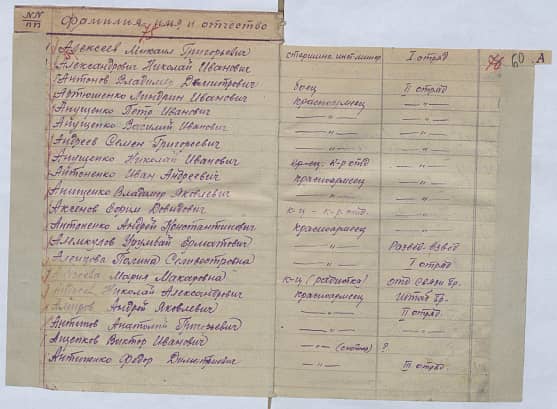 NN пп Фамилия, имя и отчество 78
Алексеев Михаил Григорьевич старшина I отряд 60 А
Александрович Николай Иванович
Антонов Владимир Дмитриевич боец II отряд
Артюшенко Иванович красноармеец —"—
Анущенко Петр Иванович —"— —"—
Анущенко Василий Иванович —"— —"—
Андреев Семен Григорьевич —"— —"—
Анущенко Николай Иванович к-р отд —"—
Антоненко Иван Андреевич красноармеец —"—
Анищенко Владимир Яковлевич —"— —"—
Аксенов Ефим Давидович к-ц - к-р отд. —"—
Антоненко Андрей Константинович красноармеец —"—
Ерматович —"— Развед. взвод
Полина —"— I отряд
Мария Макаровна к-ц (радистка) отд связи бр.
Николай Александрович красноармеец Штаб бр.
Андрей Яковлевич —"— II отряд
Антипов Анатолий —"— —"—
Ащепков Виктор Иванович —"— ?
Антоненко Федор Димитриевич —"— III отряд